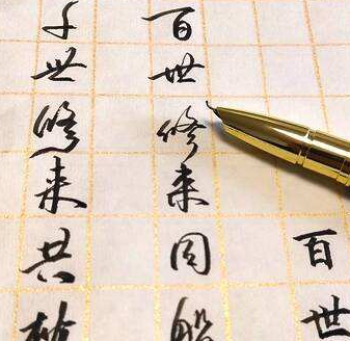 百世
百世修来同船
千世修来共枕